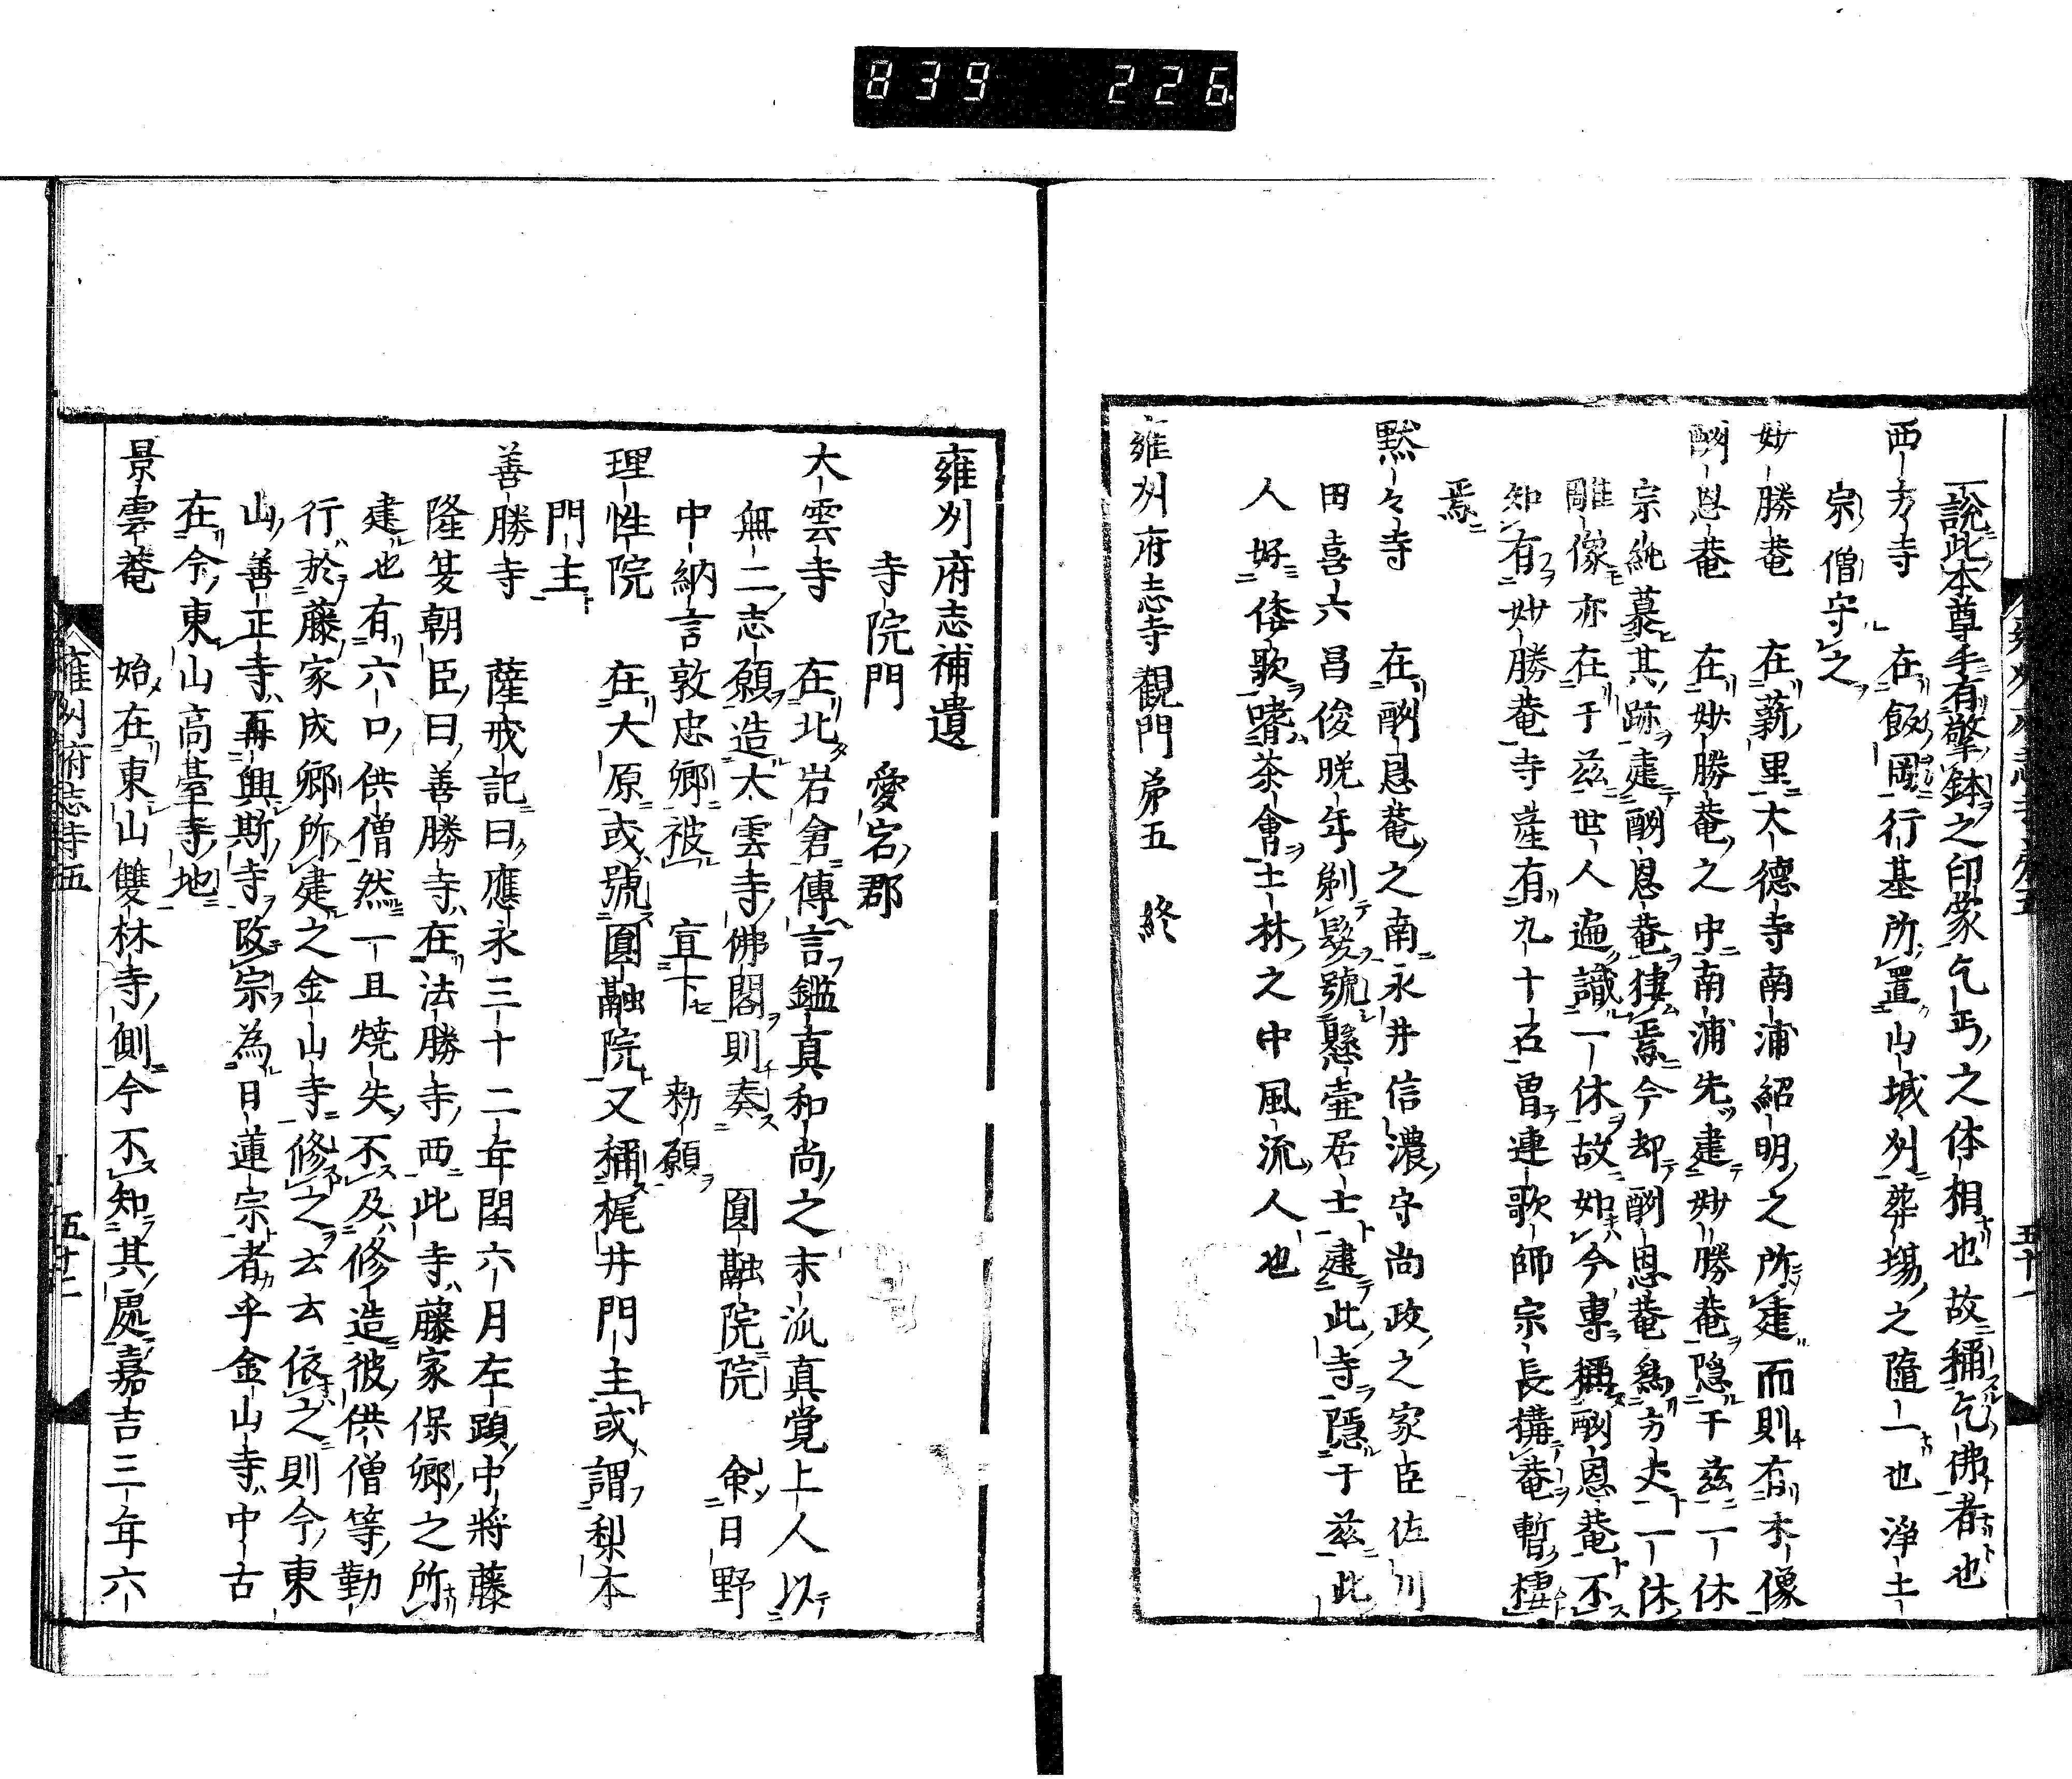 839 226
一說此本尊手有擎鉢之印蒙乞丐之体相也故稱乞佛者也
西方寺 在飯岡行基所置山城州葬場之隨一也淨土
宗僧守之
妙勝菴 在薪里大德寺南浦紹明之所建而則有木像
酬恩菴 在妙勝菴之中南浦先建妙勝菴隠于兹一休
宗純慕其跡建酬恩菴棲焉今却酬恩菴爲方丈一休
雕像亦在于兹世人遍識一休故如今專稱酬恩菴不
知有妙勝菴寺産有九十石曽連歌師宗長構菴暫棲
焉
黙々寺 在酬恩菴之南永井信濃守尚政之家臣佐川
田喜六昌俊晩年剃髮號懸壷居士建此寺隠于兹此
人好倭歌嗜茶會士林之中風流人也
雍州府志寺觀門第五 終
雍州府志補遺
寺院門 愛宕郡
大雲寺 在北岩倉傳言鑑真和尚之末流真覚上人以
無二志願造大雲寺佛閣則奏 圓融院院 命日野
中納言敦忠卿被 宣下 勅願
理性院 在大原或號圓融院又稱梶井門主或謂梨本
門主
善勝寺 薩戒記曰應永三十二年閏六月左頭中將藤
隆夏朝臣曰善勝寺在法勝寺西此寺藤家保卿之所
建也有六口供僧然一旦燒失不及修造彼供僧等勤
行於藤家成卿所建之金山寺修之云云依之則今東
山善正寺再興斯寺改宗為日蓮宗者乎金山寺中古
在今東山高臺寺地
景雲菴 始在東山雙林寺側今不知其處嘉吉三年六
雍州府志寺五 五十二